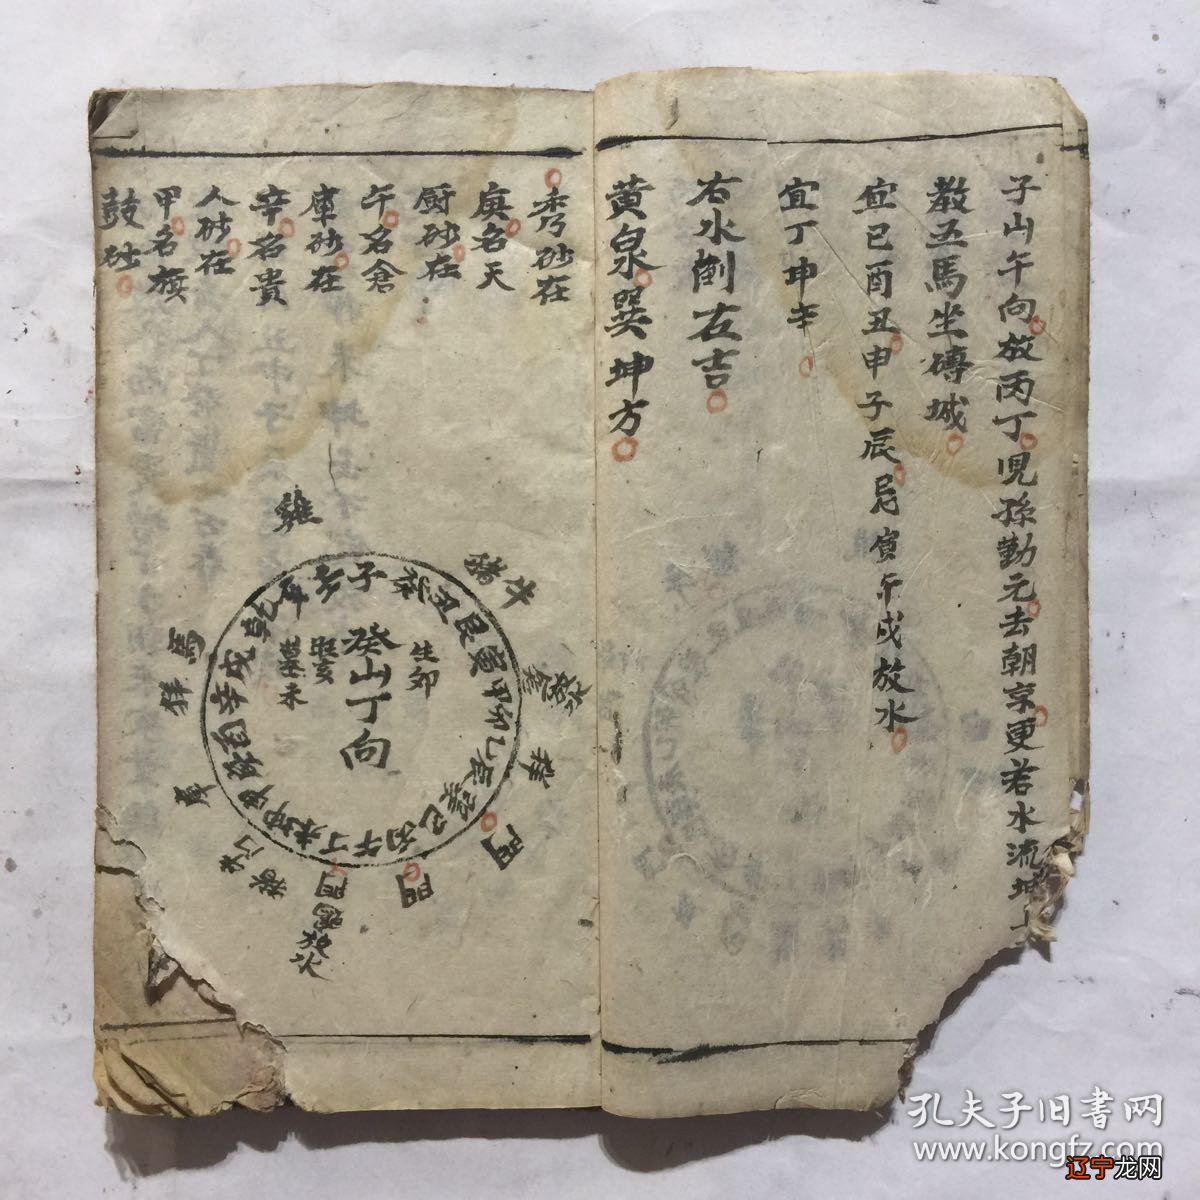 子山午向放丙丁児孫勤元去朝京更若水流坤上
教五馬坐磚城
宜巳酉丑申子辰忌寅午戌放水
宜丁坤辛
右水倒左吉
黄泉巽坤方
秀砂在
庚名天
厨砂在
午名倉
庫砂在
辛名貴
人砂在
甲名旗
鼓砂
癸山丁向
生卯
旺亥
墓未
子癸丑艮寅甲卯乙辰巽巳丙午丁未坤
戌乾
雞
猪牛
馬
門
門
門
放水
孔夫子旧书网
www.kongfz.com
辽宁龙网